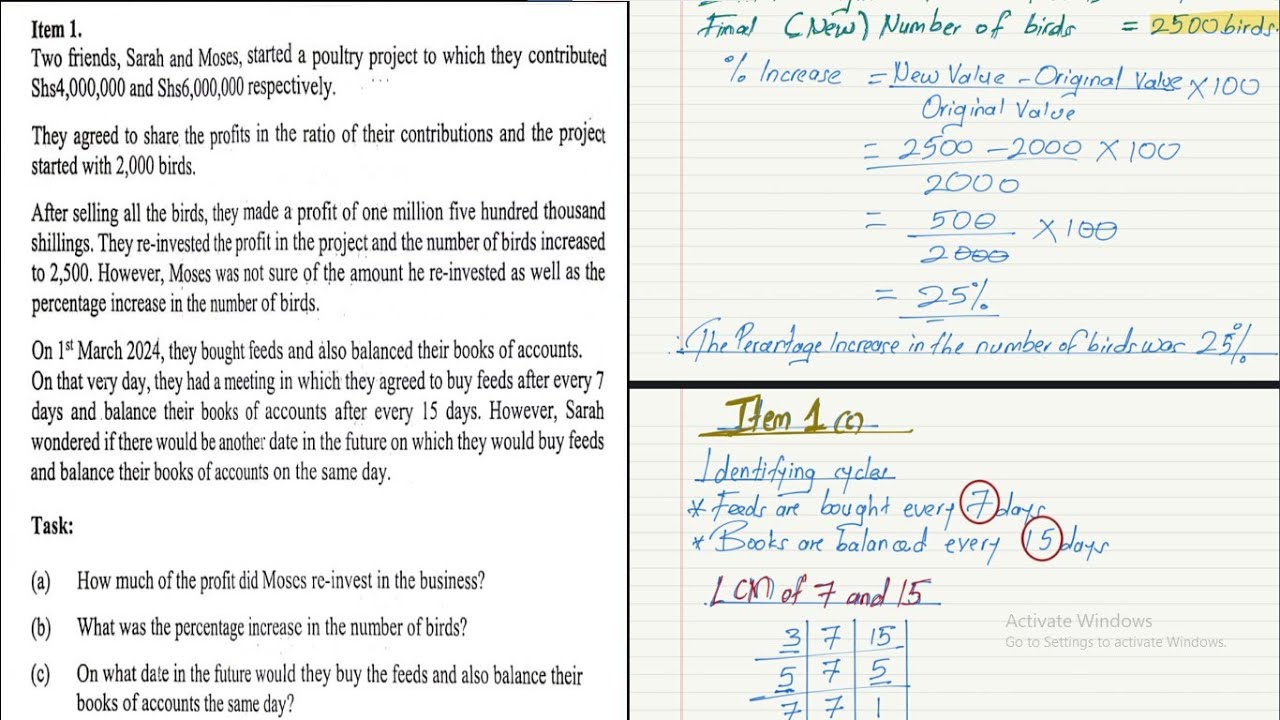 Item 1.
Two friends, Sarah and Moses, started a poultry project to which they contributed
Shs4,000,000 and Shs6,000,000 respectively.
They agreed to share the profits in the ratio of their contributions and the project
started with 2,000 birds.
After selling all the birds, they made a profit of one million five hundred thousand
shillings. They re-invested the profit in the project and the number of birds increased
to 2,500. However, Moses was not sure of the amount he re-invested as well as the
percentage increase in the number of birds.
On 1st March 2024, they bought feeds and also balanced their books of accounts.
On that very day, they had a meeting in which they agreed to buy feeds after every 7
days and balance their books of accounts after every 15 days. However, Sarah
wondered if there would be another date in the future on which they would buy feeds
and balance their books of accounts on the same day.
Task:
(a) How much of the profit did Moses re-invest in the business?
(b) What was the percentage increase in the number of birds?
(c) On what date in the future would they buy the feeds and also balance their
books of accounts the same day?
Final (New) Number of birds = 2500 birds.
% Increase = New Value - Original Value × 100
Original Value
= 2500 - 2000 × 100
2000
= 500 × 100
2000
= 25%
∴ The Percentage Increase in the number of birds was 25%
Item 1 (c)
Identifying cycles
* Feeds are bought every 7 days
* Books are balanced every 15 days
LCM of 7 and 15
3 7 15
5 7 5
7 7 1
Activate Windows
Go to Settings to activate Windows.